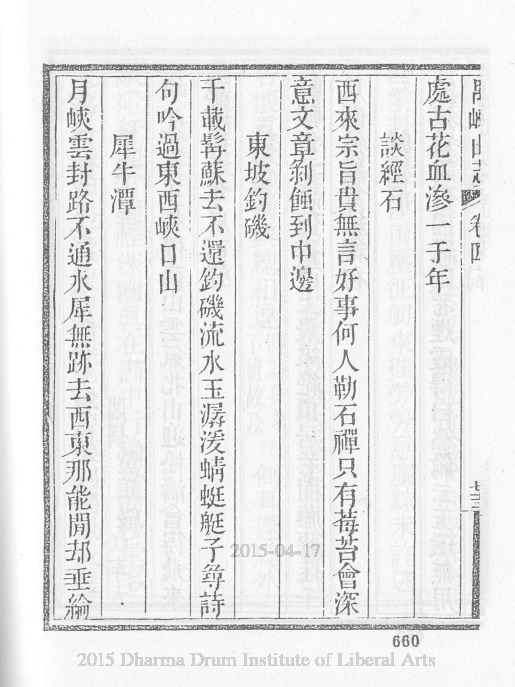 峽山志 卷四
處古花血滲一千年
談經石
西來宗旨貴無言好事何人勒石禪只有莓苔會深
意文章剥蝕到中邊
東坡釣磯
千載髯蘇去不還釣磯流水玉潺湲蜻蜓艇子尋詩
句吟過東西峽口山
犀牛潭
月峽雲封路不通水犀無跡去西東那能閒却垂綸
七三
660
2015-04-17
2015 Dharma Drum Institute of Liberal Arts